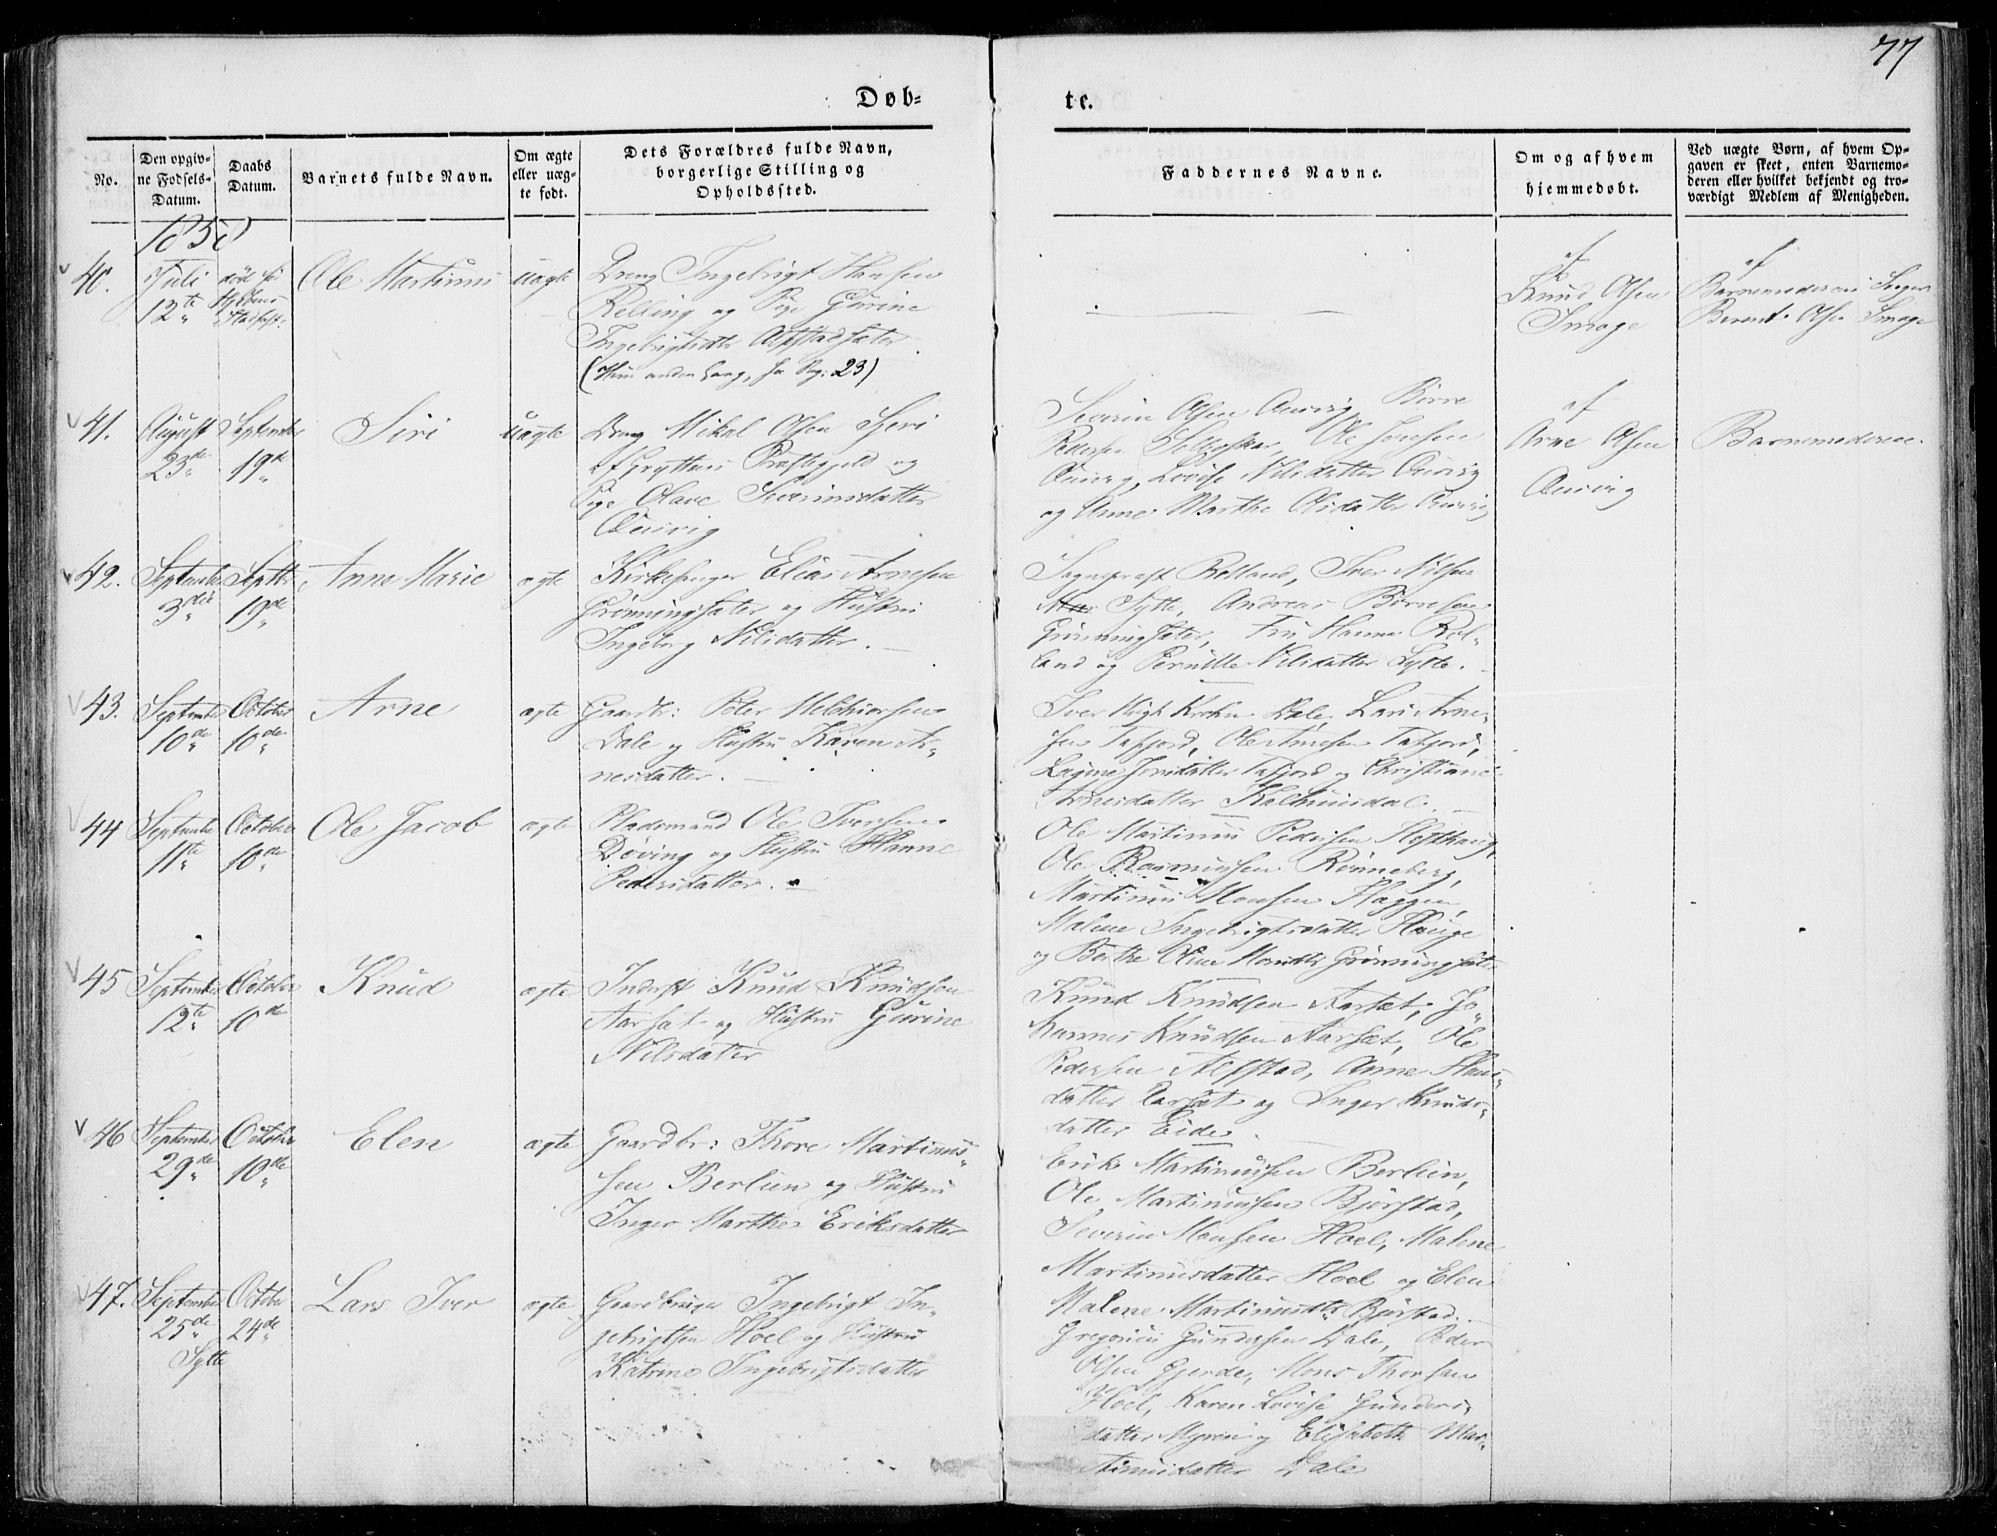 77
Døb-
te.
No.
Den opgivne Fødsels-Datum.
Daabs Datum.
Barnets fulde Navn.
Om ægte eller uægte født.
Dets Forældres fulde Navn, borgerlige Stilling og Opholdssted.
Faddernes Navne.
Om og af hvem hjemmedøbt.
Ved uægte Børn, af hvem Opgaven er skeet, enten Barnemoderen eller hvilket bekjendt og troværdigt Medlem af Menigheden.
1858
40. Juli 12te
død før
Ole Martinus
uægte
Dreng Ingebrigt Hansen
Relling og Pige Gurine
Ingebrigtsdtr Alfstadsæter
(Hun anden Gang, se Pag: 23)
af
Knud Olsen
Smoge
af
Barnemoderens
Berent Olsen Smoge
41. August 23de
September 19de
Siri
uægte
Dreng Mikal Olsen
af Gryttens Præstegjeld og
Pige Olave Severinsdatter
Overvig
Severin Olsen Overvig, Børre
Pedersen Ole Jensen
Overvig, Lovise Nilsdatter Overvig
og Anne Marthe Olsdatter Overvig
af
Arne Olsen
Overvig
Barnemoderen.
42. September 3die
Septbr 19de
Anne Marie
ægte
Kirkesanger Elias Arnesen
Grønningsæter og Hustru
Ingeborg Nilsdatter.
Sognepræst Rolland, Iver Nilsen
Sylte, Andreas Børresen
Grønningsæter, Fru Hanna Rol-
land og Pernille Nilsdatter Sylte.
43. September 10de
October 10de
Arne
ægte
Gaardbr: Peter Melchiorsen
Dale og Hustru Karen Ar-
nesdatter.
Iver Krohn Dale, Lars Arne-
sen Tafjord, Ole Arnesen Tafjord,
Jonsdatter Tafjord og Christiane
Arnesdatter Kalhusdal.
44 September 11te
October 10de
Ole Jacob
ægte
Pladsmand Ole Iversen
Døving og Hustru Hanne
Pedersdatter.
Ole Martinus Pedersen Hofthaug,
Ole Rasmussen Rønneberg,
Martinus Monsen Skaggen,
Malene Ingebrigtsdatter Hauge
og Berthe Oline Monsdtr Grønningsæter
45 September 12te
October 10de
Knud
ægte
Inderst Knud Knudsen
Aarsæt og Hustru Gurine
Nilsdatter
Knud Knudsen Aarsæt, Jo-
hannes Knudsen Aarsæt, Ole
Pedersen Alfstad, Anne Hans-
datter Aarsæt og Inger Knuds-
datter Eide.
46 September 29de
October 10de
Elen
ægte
Gaardbr: Thore Martinus-
sen Berlien og Hustru
Inger Marthe Eriksdatter
Erik Martinussen Berlien,
Ole Martinussen Bjørstad,
Severin Monsen Hoel, Malene
Martinusdatter Hoel og Elen
Malene Martinusdtr Bjørstad.
47. September 25de
Sylte
October 24de
Lars Iver
ægte
Gaardbruger Ingebrigt In-
gebrigtsen Hoel og Hustru
Katrine Ingebrigtsdatter
Gregorius Gundersen Dale, Peder
Olsen Gjerde, Mons Thorsen
Hoel, Karen Lovise Gunders-
datter Myren og Elisabeth Mar-
tinusdatter Dale